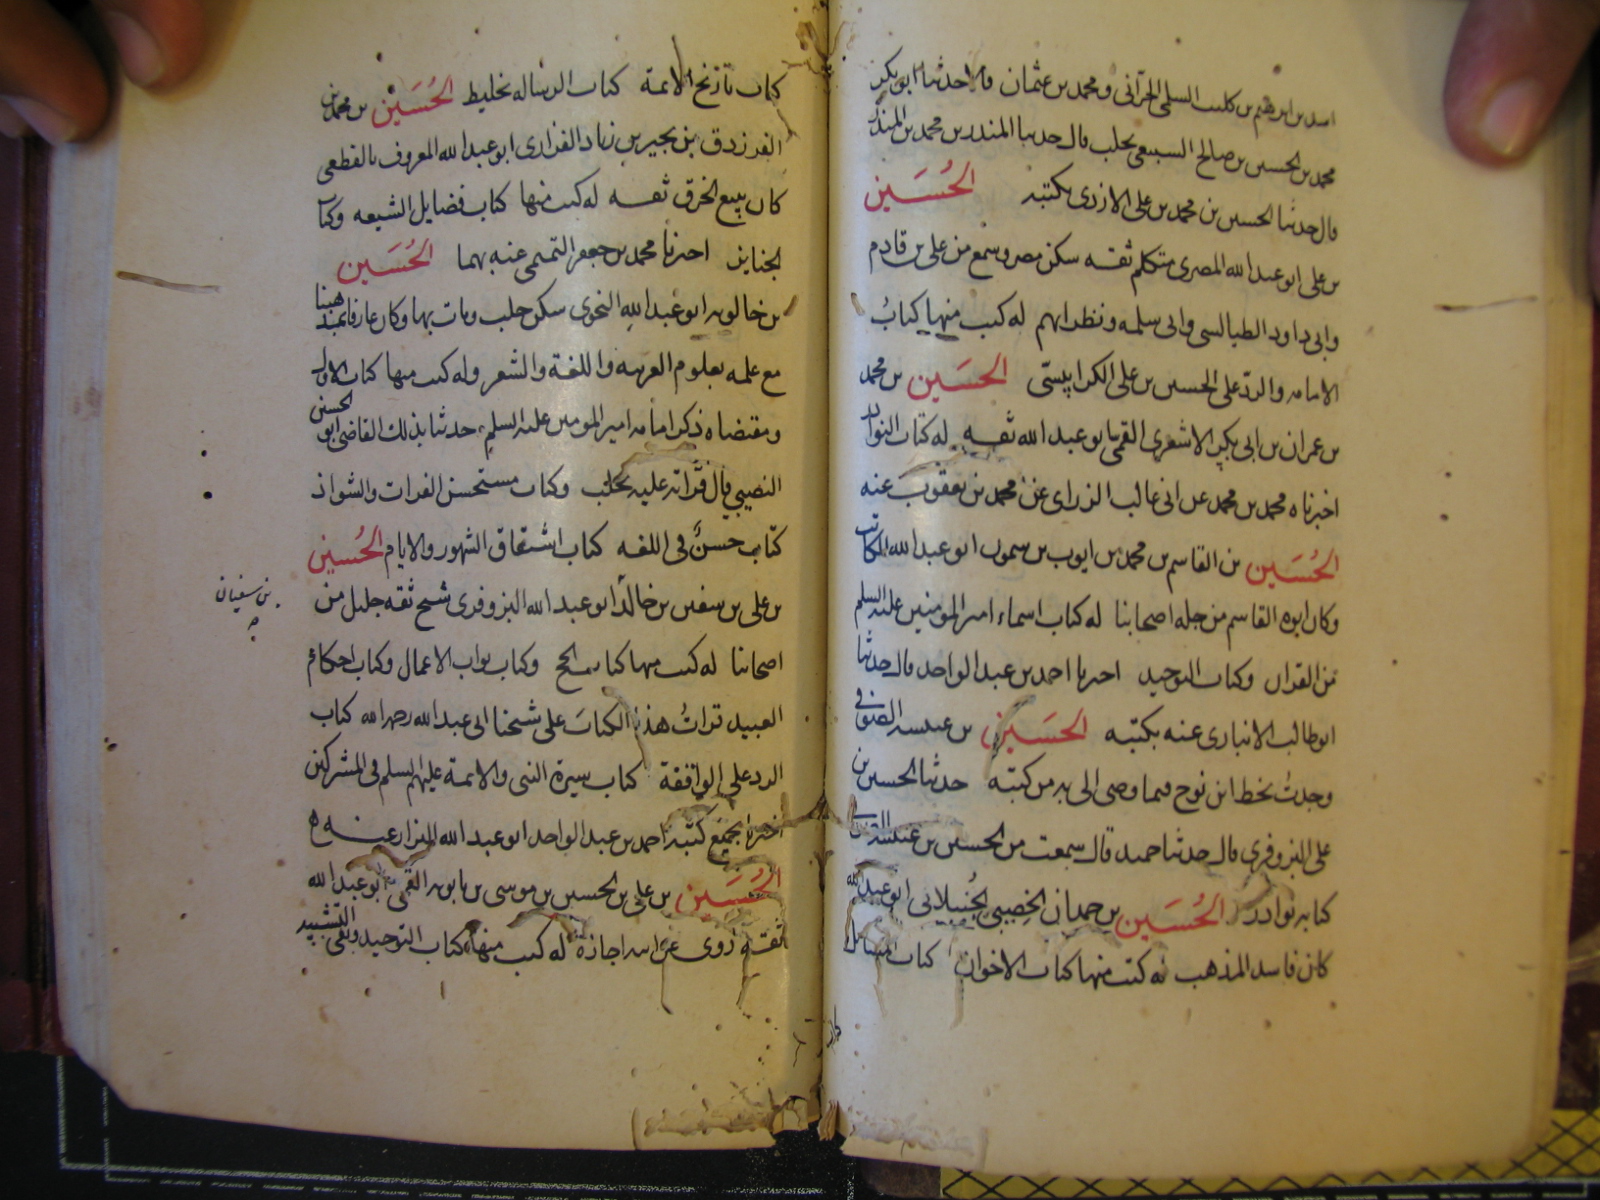 اسد بن ابرهيم بن كليب السلمي الحراني ومحمد بن عثمان قالا حدثنا ابو بكر
محمد بن الحسين بن صالح السبيعي بحلب قال حدثنا المنذر بن محمد بن المنذر
قال حدثنا الحسين بن محمد بن علي الازدي بكتبه الحُسَين
بن علي ابو عبد الله المصري متكلم ثقه سكن مصر وسمع من علي بن قادم
وابي داود الطيالسي وابي سلمه ونظرائهم له كتب منها كتابُ
الامامه والرد على الحسين بن علي الكرابيسي الحسَين بن محمد
بن عمران بن ابي بكر الاشعري القمي ابو عبد الله ثقه له كتاب النوادر
اخبرناه محمد بن محمد عن ابي غالب الزراري عن محمد بن يعقوب عنه
الحُسَين بن القاسم بن محمد بن ايوب بن شمون ابو عبد الله الكاتب
وكان ابوه القاسم من جله اصحابنا له كتاب اسماء امير المومنين عليه السلم
من القران وكتاب التوحيد اخبرنا احمد بن عبد الواحد قال حدثنا
ابو طالب الانباري عنه بكتبه الحسَين بن عنبسه الصوفي
وجدتُ بخط ابن نوح فيما وصى الي به من كتبه حدثنا الحسين بن
علي البزوفري قال حدثنا حميد قال سمعت من الحسين بن عنبسه
كتابه نوادر الحُسَين بن حمدان الخصيبي الجُنبلاني ابو عبد الله
كان فاسد المذهب له كتب منها كتاب الاخوان كتاب المسائل
كتاب تاريخ الائمة كتاب الرساله تخليط الحُسَين بن محمد بن
الفرزدق بن بجير بن زياد الفزاري ابو عبد الله المعروف بالقطعي
كان يبيع الخرق ثقه له كتب منها كتاب فضايل الشيعه وكتاب
الجنايز اخبرنا محمد بن جعفر التميمي عنه بهما الحُسَين
بن خالويه ابو عبد الله النحوي سكن حلب ومات بها وكان عارفا بمذهبنا
مع علمه بعلوم العربيه واللغة والشعر وله كتب منها كتاب الاول
ومقتضاه ذكر امامه امير المومنين عليه السلم حدثنا بذلك القاضي ابو الحسين
النصيبي قال قراته عليه بحلب وكتاب مستحسن القراات والشواذ
كتاب حسنٌ في اللغه كتاب اشتقاق الشهور والايام الحُسين
بن علي بن سفين بن خالد ابو عبد الله البزوفري شيخ ثقه جليل من
بن سفيان
اصحابنا له كتب منها كتاب الحج وكتاب ثواب الاعمال وكتاب احكام
العبيد قراتُ هذا الكتابَ على شيخنا ابي عبد الله رحمه الله كتاب
الرد على الواقفة كتاب سيرة النبي والائمة عليهم السلم في المشركين
اخبرنا بجميع كتبه احمد بن عبد الواحد ابو عبد الله البزاز عنه
الحُسَين بن علي بن الحسين بن موسى بن بابويه القمي ابو عبد الله
ثقه روى عن ابيه اجازة له كتب منها كتاب التوحيد ونفي التشبيه